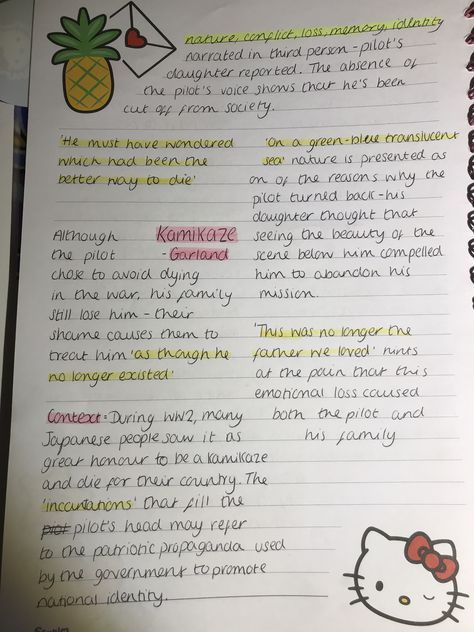 nature, conflict, loss, memory, identity
narrated in third person - pilot's
daughter reported. The absence of
the pilot's voice shows that he's been
cut off from society.
'He must have wondered
which had been the
better way to die'
'On a green-blue translucent
sea' nature is presented as
on of the reasons why the
pilot turned back - his
daughter thought that
seeing the beauty of the
scene below him compelled
him to abandon his
mission.
Kamikaze
- Garland
Although
the pilot
chose to avoid dying
in the war, his family
still lose him - their
shame causes them to
treat him 'as though he
no longer existed'
'This was no longer the
father we loved' hints
at the pain that this
emotional loss caused
both the pilot and
his family
Context: During WW2, many
Japanese people saw it as
great honour to be a kamikaze
and die for their country. The
'incantations' that fill the
pilot's head may refer
to the patriotic propaganda used
by the government to promote
national identity.